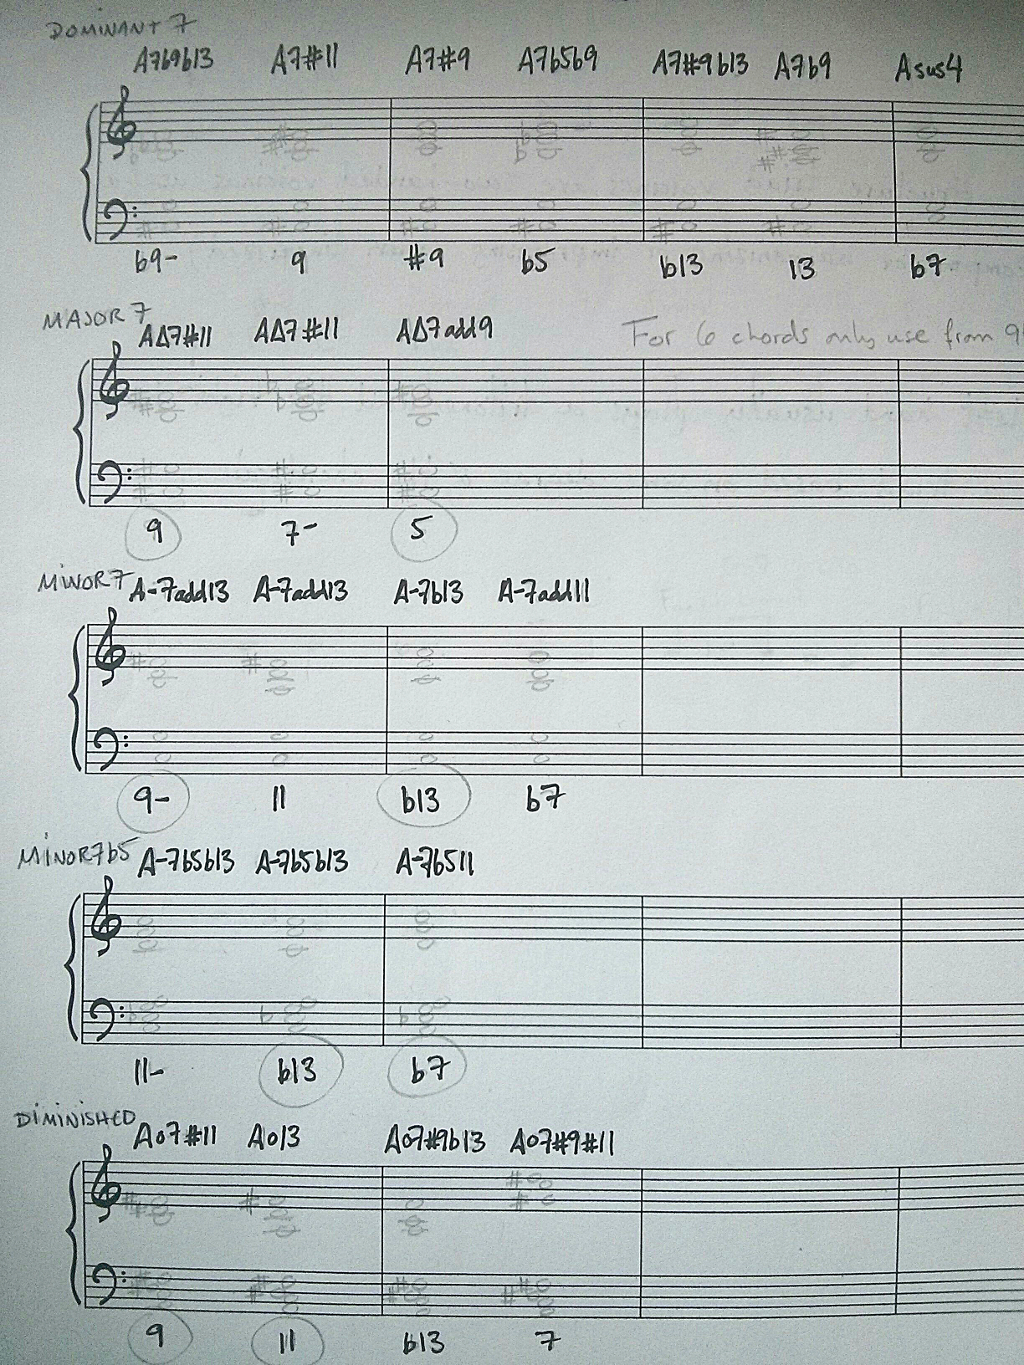 DOMINANT 7
A7b9b13 A7#11 A7#9 A7b5b9 A7#9b13 A7b9 Asus4
b9- 9 #9 b5 b13 13 b7
MAJOR 7
A∆7#11 A∆7#11 A∆7add9 For 6 chords only use from
9 7- 5
MINOR 7 A-7add13 A-7add13 A-7b13 A-7add11
9- 11 b13 b7
MINOR7b5 A-7b5b13 A-7b5b13 A-7b511
11- b13 b7
DIMINISHED
Ao7#11 Ao13 Ao7#9b13 Ao7#9#11
9 11 b13 7